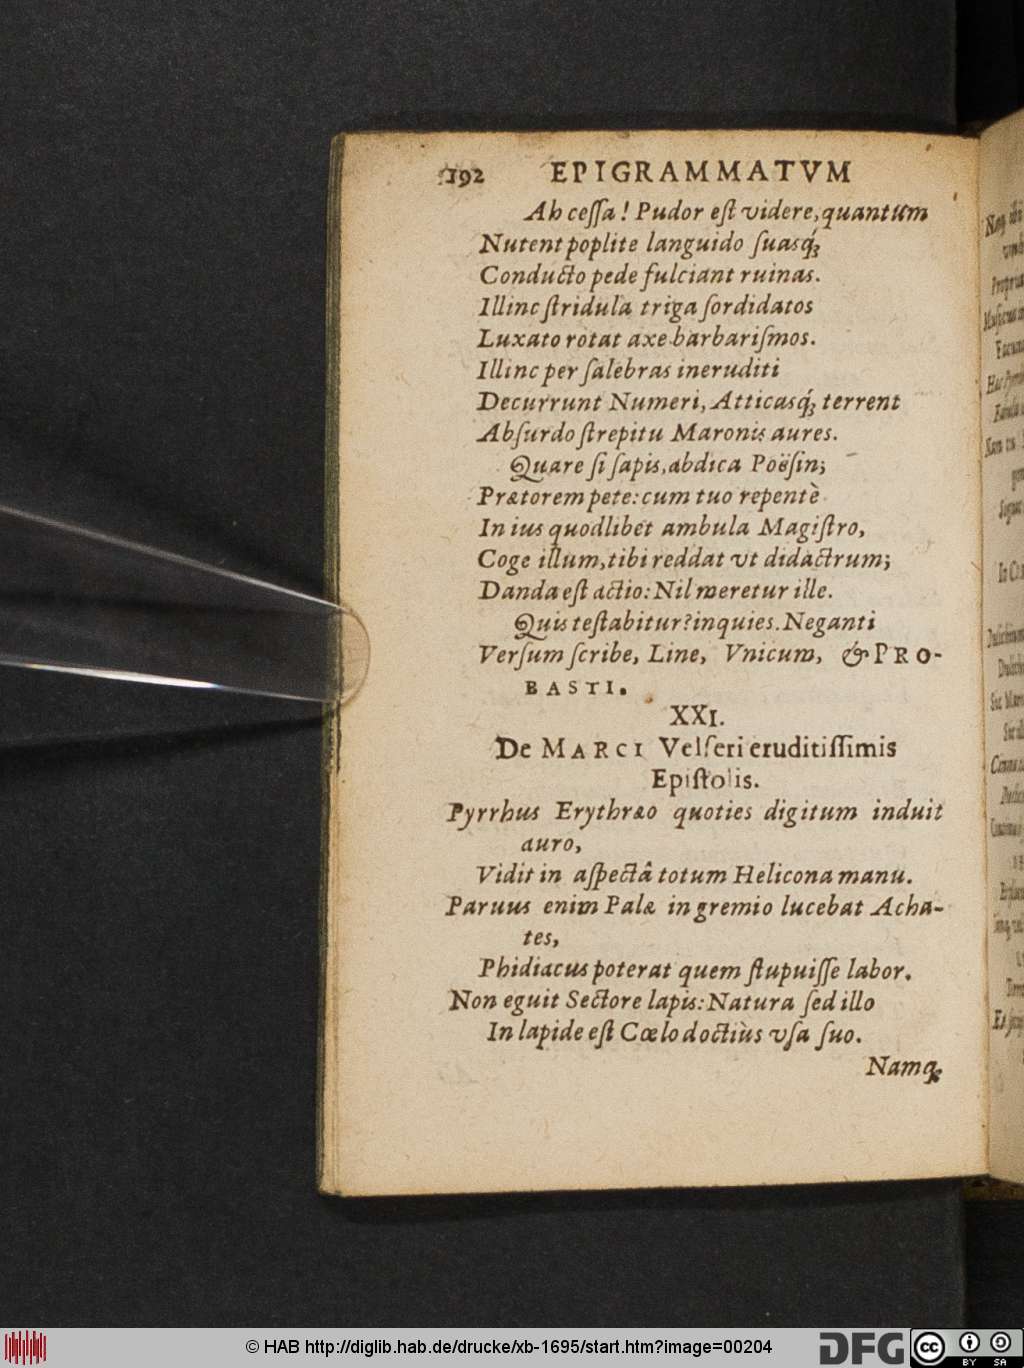 192 EPIGRAMMATVM
Ah ceſſa! Pudor eſt videre, quantum
Nutent poplite languido ſuasq́;
Conducto pede fulciant ruinas.
Illinc ſtridula triga ſordidatos
Luxato rotat axe barbariſmos.
Illinc per ſalebras ineruditi
Decurrunt Numeri, Atticasq́; terrent
Abſurdo ſtrepitu Maronis aures.
Quare ſi ſapis, abdica Poëſin;
Prætorem pete: cum tuo repentè
In ius quodlibet ambula Magiſtro,
Coge illum, tibi reddat vt didactrum;
Danda eſt actio: Nil meretur ille.
Quis teſtabitur? inquies. Neganti
Verſum ſcribe, Line, Vnicum, & PRO-
BASTI.
XXI.
De MARCI Velſeri eruditiſſimis
Epiſtolis.
Pyrrhus Erythræo quoties digitum induit
auro,
Vidit in aſpectâ totum Helicona manu.
Paruus enim Palæ in gremio lucebat Acha-
tes,
Phidiacus poterat quem ſtupuiſſe labor.
Non eguit Sectore lapis: Natura ſed illo
In lapide eſt Cœlo doctiùs vſa ſuo.
Namq;
© HAB http://diglib.hab.de/drucke/xb-1695/start.htm?image=00204
DFG
cc BY SA